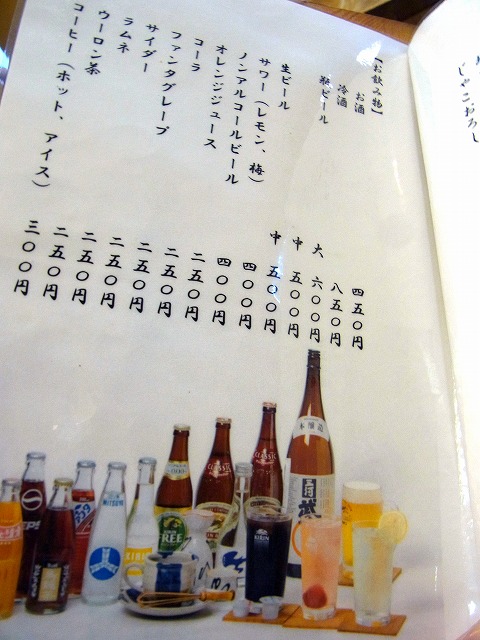 じゃこおろし
【お飲み物】
お酒 四五〇円
冷酒 八五〇円
瓶ビール 大 六〇〇円
中 五〇〇円
生ビール 中 五〇〇円
サワー（レモン、梅） 四〇〇円
ノンアルコールビール 四〇〇円
オレンジジュース 二五〇円
コーラ 二五〇円
ファンタグレープ 二五〇円
サイダー 二五〇円
ラムネ 二五〇円
ウーロン茶 二五〇円
コーヒー（ホット、アイス） 三〇〇円
本醸造
CLASSIC
CLASSIC
FREE
KIRIN